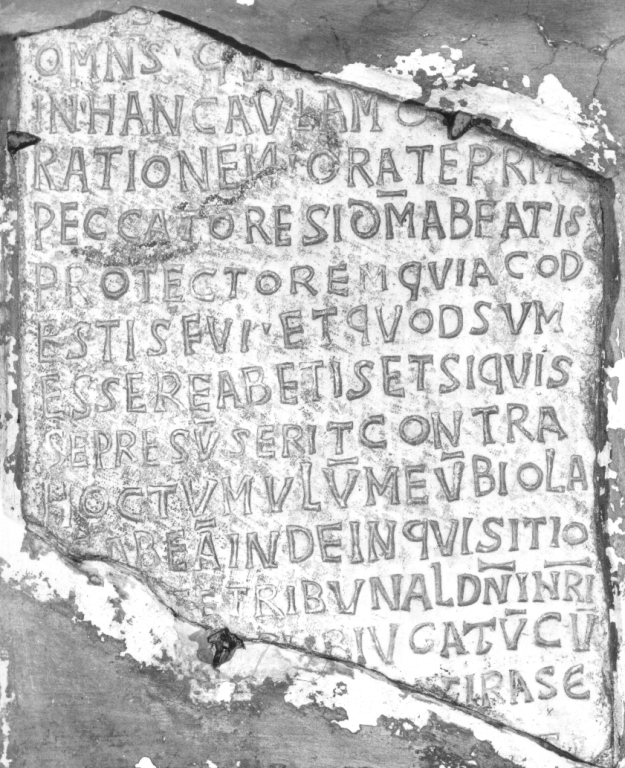 OMNS QUI
IN HANC AULAM O
RATIONEM ORATE PR ME
PECCATORE SI DM̄ ABEATIS
PROTECTOREM QVIA COD
ESTIS FVI ET QVOD SVM
ESSERE ABETIS ET SI QVIS
SE PRESV̄SERIT CONTRA
HOC TVMVLV̄M EV̄ BIOLA
ABEĀ INDE INQVISITIO
TE TRIBVNAL DN̄I IH̄RĪ
BIVGATV̄ CV̄
TIRASE